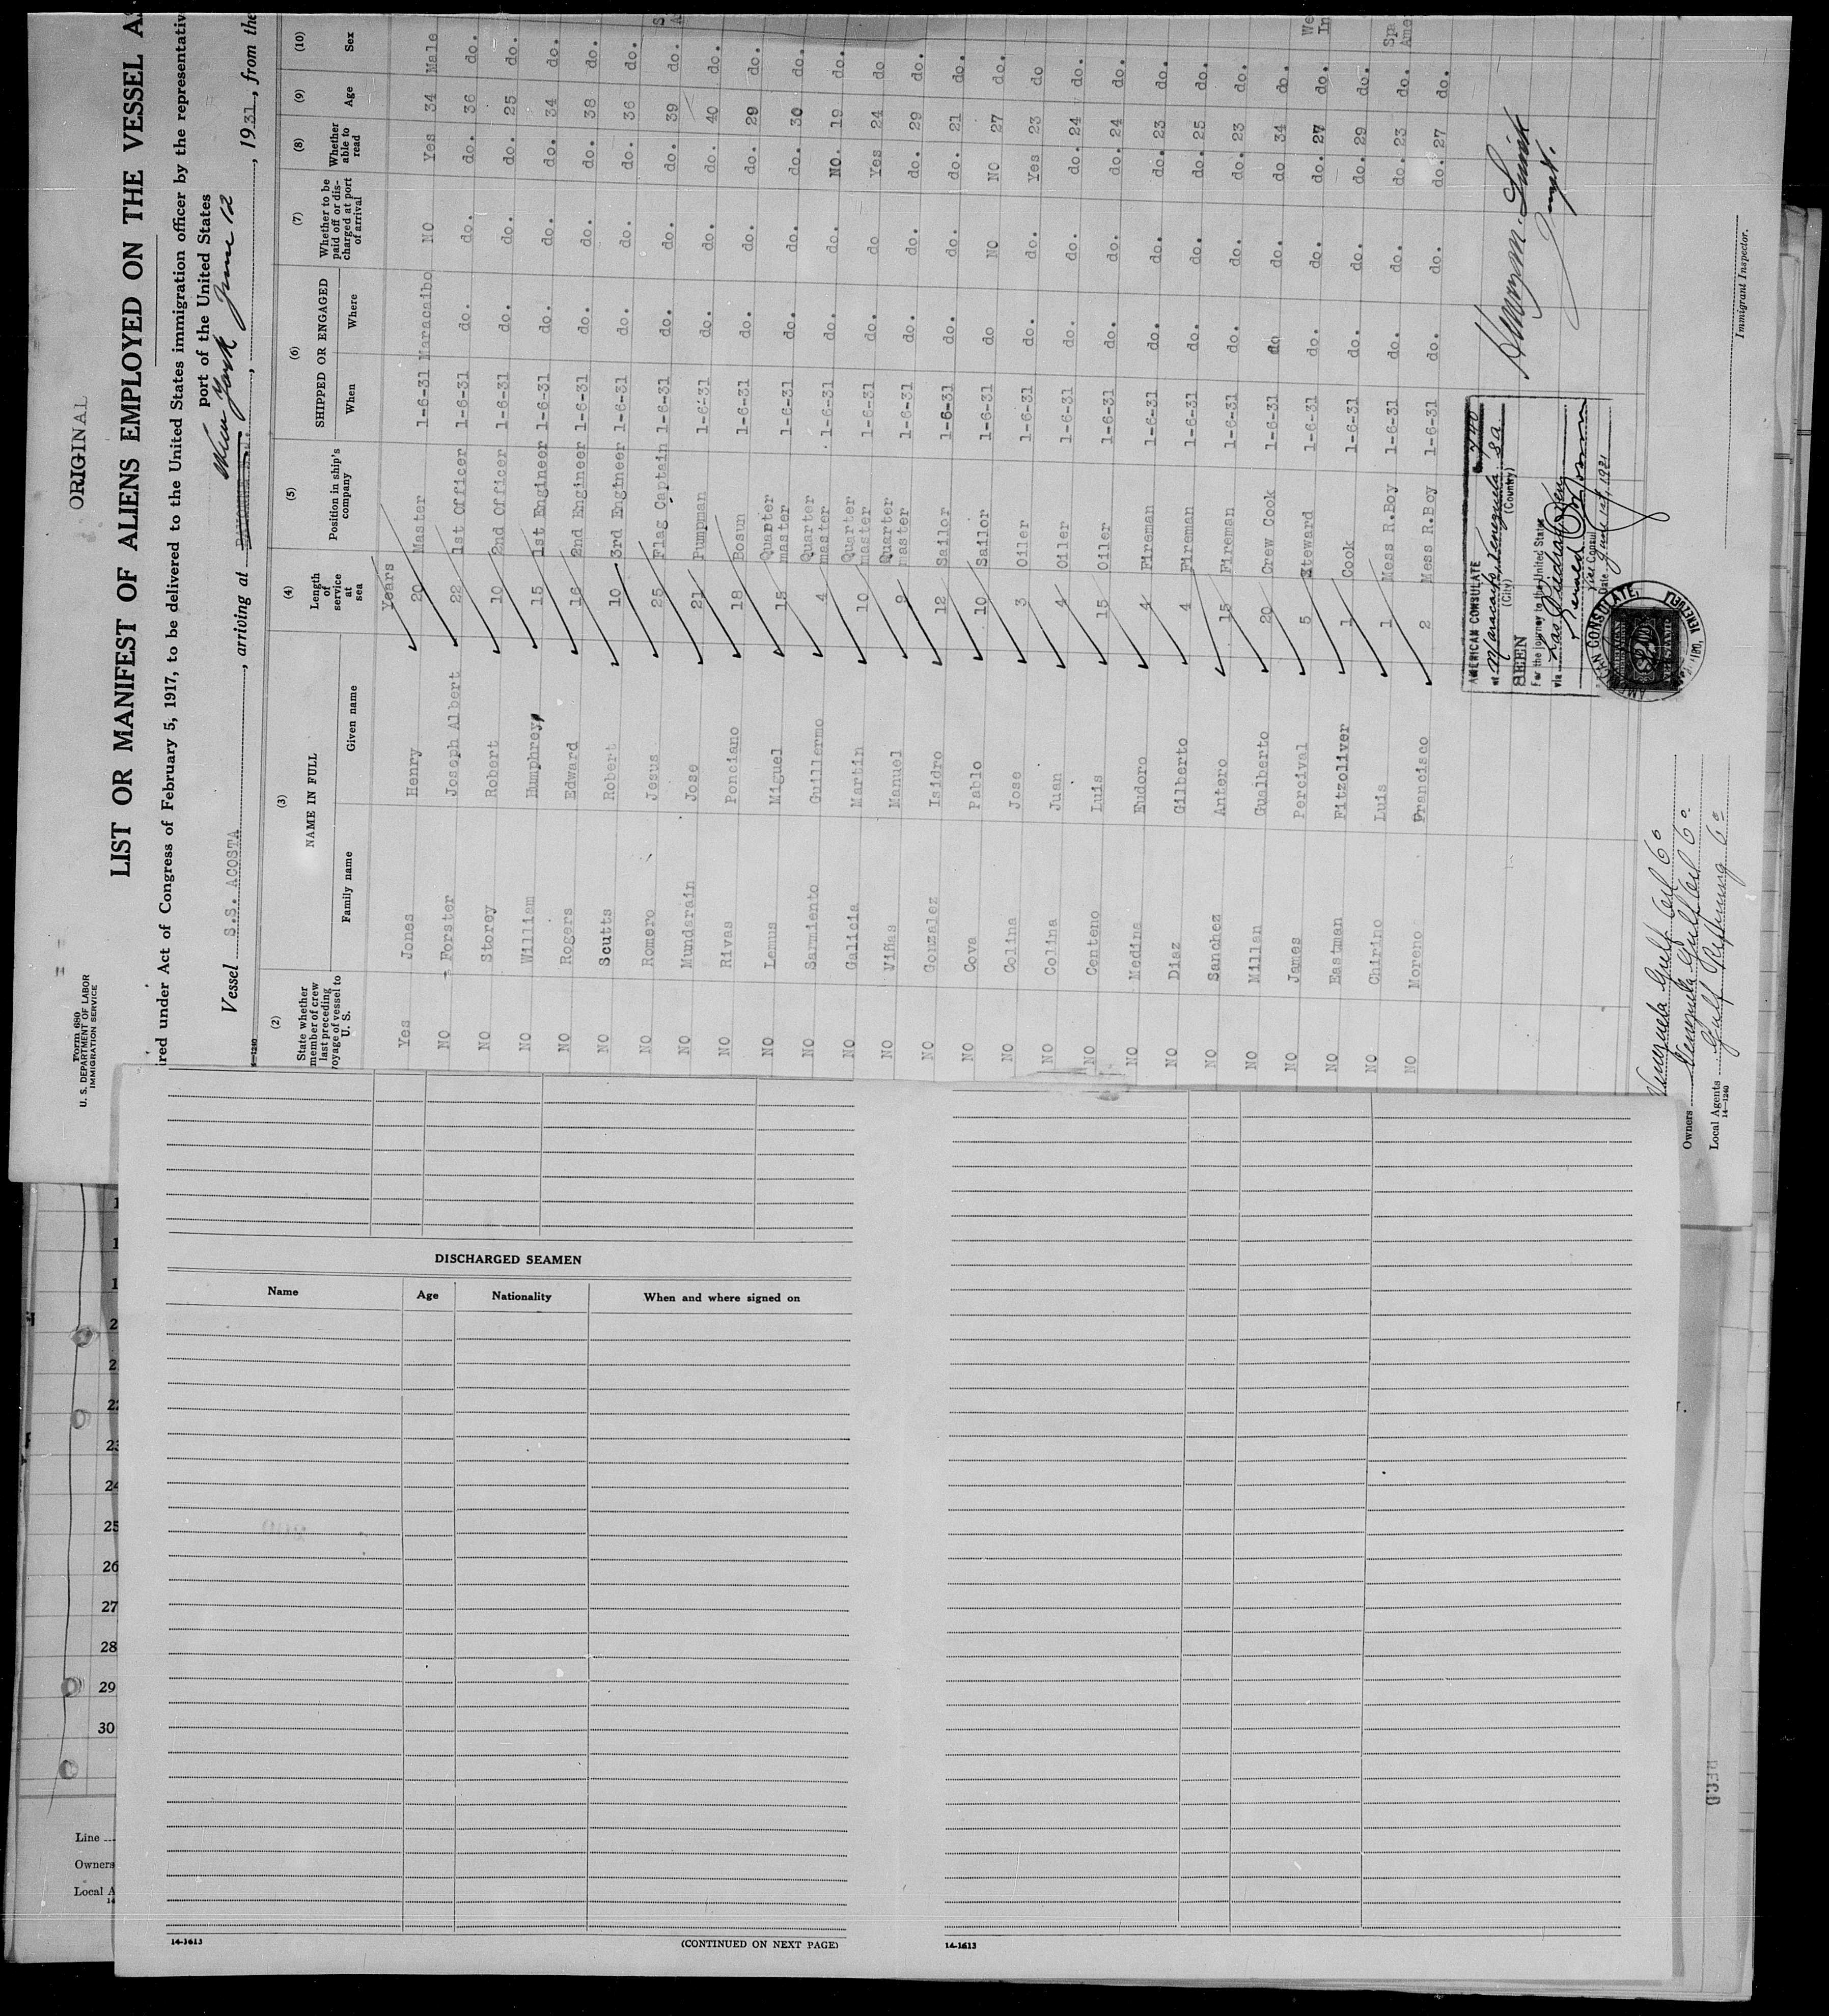 ORIGINAL
Form 680
U. S. DEPARTMENT OF LABOR
IMMIGRATION SERVICE
LIST OR MANIFEST OF ALIENS EMPLOYED ON THE VESSEL AS
ired under Act of Congress of February 5, 1917, to be delivered to the United States immigration officer by the representativ
port of the United States
Vessel S.S. ACOSTA, arriving at New York June 12, 1931, from the
14-1240
(2) (3) (4) (5) (6) (7) (8) (9) (10)
State whether member of crew last preceding voyage of vessel to U. S. NAME IN FULL Family name Given name Length of service at sea Position in ship's company SHIPPED OR ENGAGED When Where Whether to be paid off or discharged at port of arrival Whether able to read Age Sex
Years
Yes Jones Henry 20 Master 1-6-31 Maracaibo NO Yes 34 Male
NO Forster Joseph Albert 22 1st Officer 1-6-31 do. do. do. 36 do.
NO Storey Robert 10 2nd Officer 1-6-31 do. do. do. 25 do.
NO William Humphrey 15 1st Engineer 1-6-31 do. do. do. 34 do.
NO Rogers Edward 16 2nd Engineer 1-6-31 do. do. do. 38 do.
NO Scutts Robert 10 3rd Engineer 1-6-31 do. do. do. 36 do.
NO Romero Jesus 25 Flag Captain 1-6-31 do. do. do. 39 do.
NO Mundarain Jose 21 Pumpman 1-6-31 do. do. do. 40 do.
NO Rivas Ponciano 18 Bosun 1-6-31 do. do. do. 29 do.
NO Lemus Miguel 15 Quarter master 1-6-31 do. do. do. 30 do.
NO Sarmiento Guillermo 4 Quarter master 1-6-31 do. do. NO. 19 do.
NO Galicia Martin 10 Quarter master 1-6-31 do. do Yes 24 do
NO Viñas Manuel 9 Quarter master 1-6-31 do. do. do. 29 do.
NO Gonzalez Isidro 12 Sailor 1-6-31 do. do. do. 21 do.
NO Cova Pablo 10 Sailor 1-6-31 do NO NO 27 do.
NO Colina Jose 3 Oiler 1-6-31 do. do. Yes 23 do
NO Colina Juan 4 Oiler 1-6-31 do. do. do. 24 do.
NO Centeno Luis 15 Oiler 1-6-31 do. do. do. 24 do.
NO Medina Eudoro 4 Fireman 1-6-31 do. do. do. 23 do.
NO Diaz Gilberto 4 Fireman 1-6-31 do. do. do. 25 do.
NO Sanchez Antero 15 Fireman 1-6-31 do. do. do. 23 do.
NO Millan Gualberto 20 Crew Cook 1-6-31 do do. do 34 do.
NO James Percival 5 Steward 1-6-31 do. do. do. 27 do.
NO Eastman Fitzoliver 1 Cook 1-6-31 do. do. do. 29 do.
NO Chirino Luis 1 Mess R.Boy 1-6-31 do. do. do. 23 do.
NO Moreno Francisco 2 Mess R.Boy 1-6-31 do. do. do. 27 do.
We
In
Spa
Ame
AMERICAN CONSULATE
at Maracaibo, Venezuela SA
(City) (Country)
SEEN
For the journey to the United States
via Las Piedras Ven
Vice Consul
Date June 1st, 1931
AMERICAN CONSULATE
Immigrant Inspector.
Venezuela Gulf Oil Co
Owners Venezuela Gulf Oil Co
Local Agents Gulf Refining Co
14-1240
DISCHARGED SEAMEN
Name Age Nationality When and where signed on
14-1613
(CONTINUED ON NEXT PAGE)
14-1613
1
1
1
2
2
22
23
24
25
26
27
28
29
30
Line
Owners
Local A
14
REC'D